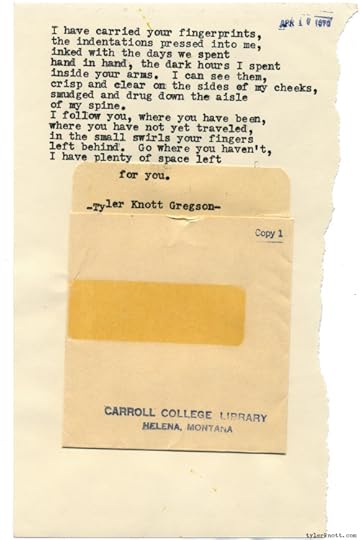 APR 18 1970
I have carried your fingerprints,
the indentations pressed into me,
inked with the days we spent
hand in hand, the dark hours I spent
inside your arms.  I can see them,
crisp and clear on the sides of my cheeks,
smudged and drug down the aisle
of my spine.
I follow you, where you have been,
where you have not yet traveled,
in the small swirls your fingers
left behind.  Go where you haven't,
I have plenty of space left
for you.
-Tyler Knott Gregson-
Copy 1
CARROLL COLLEGE LIBRARY
HELENA, MONTANA
tylerknott.com